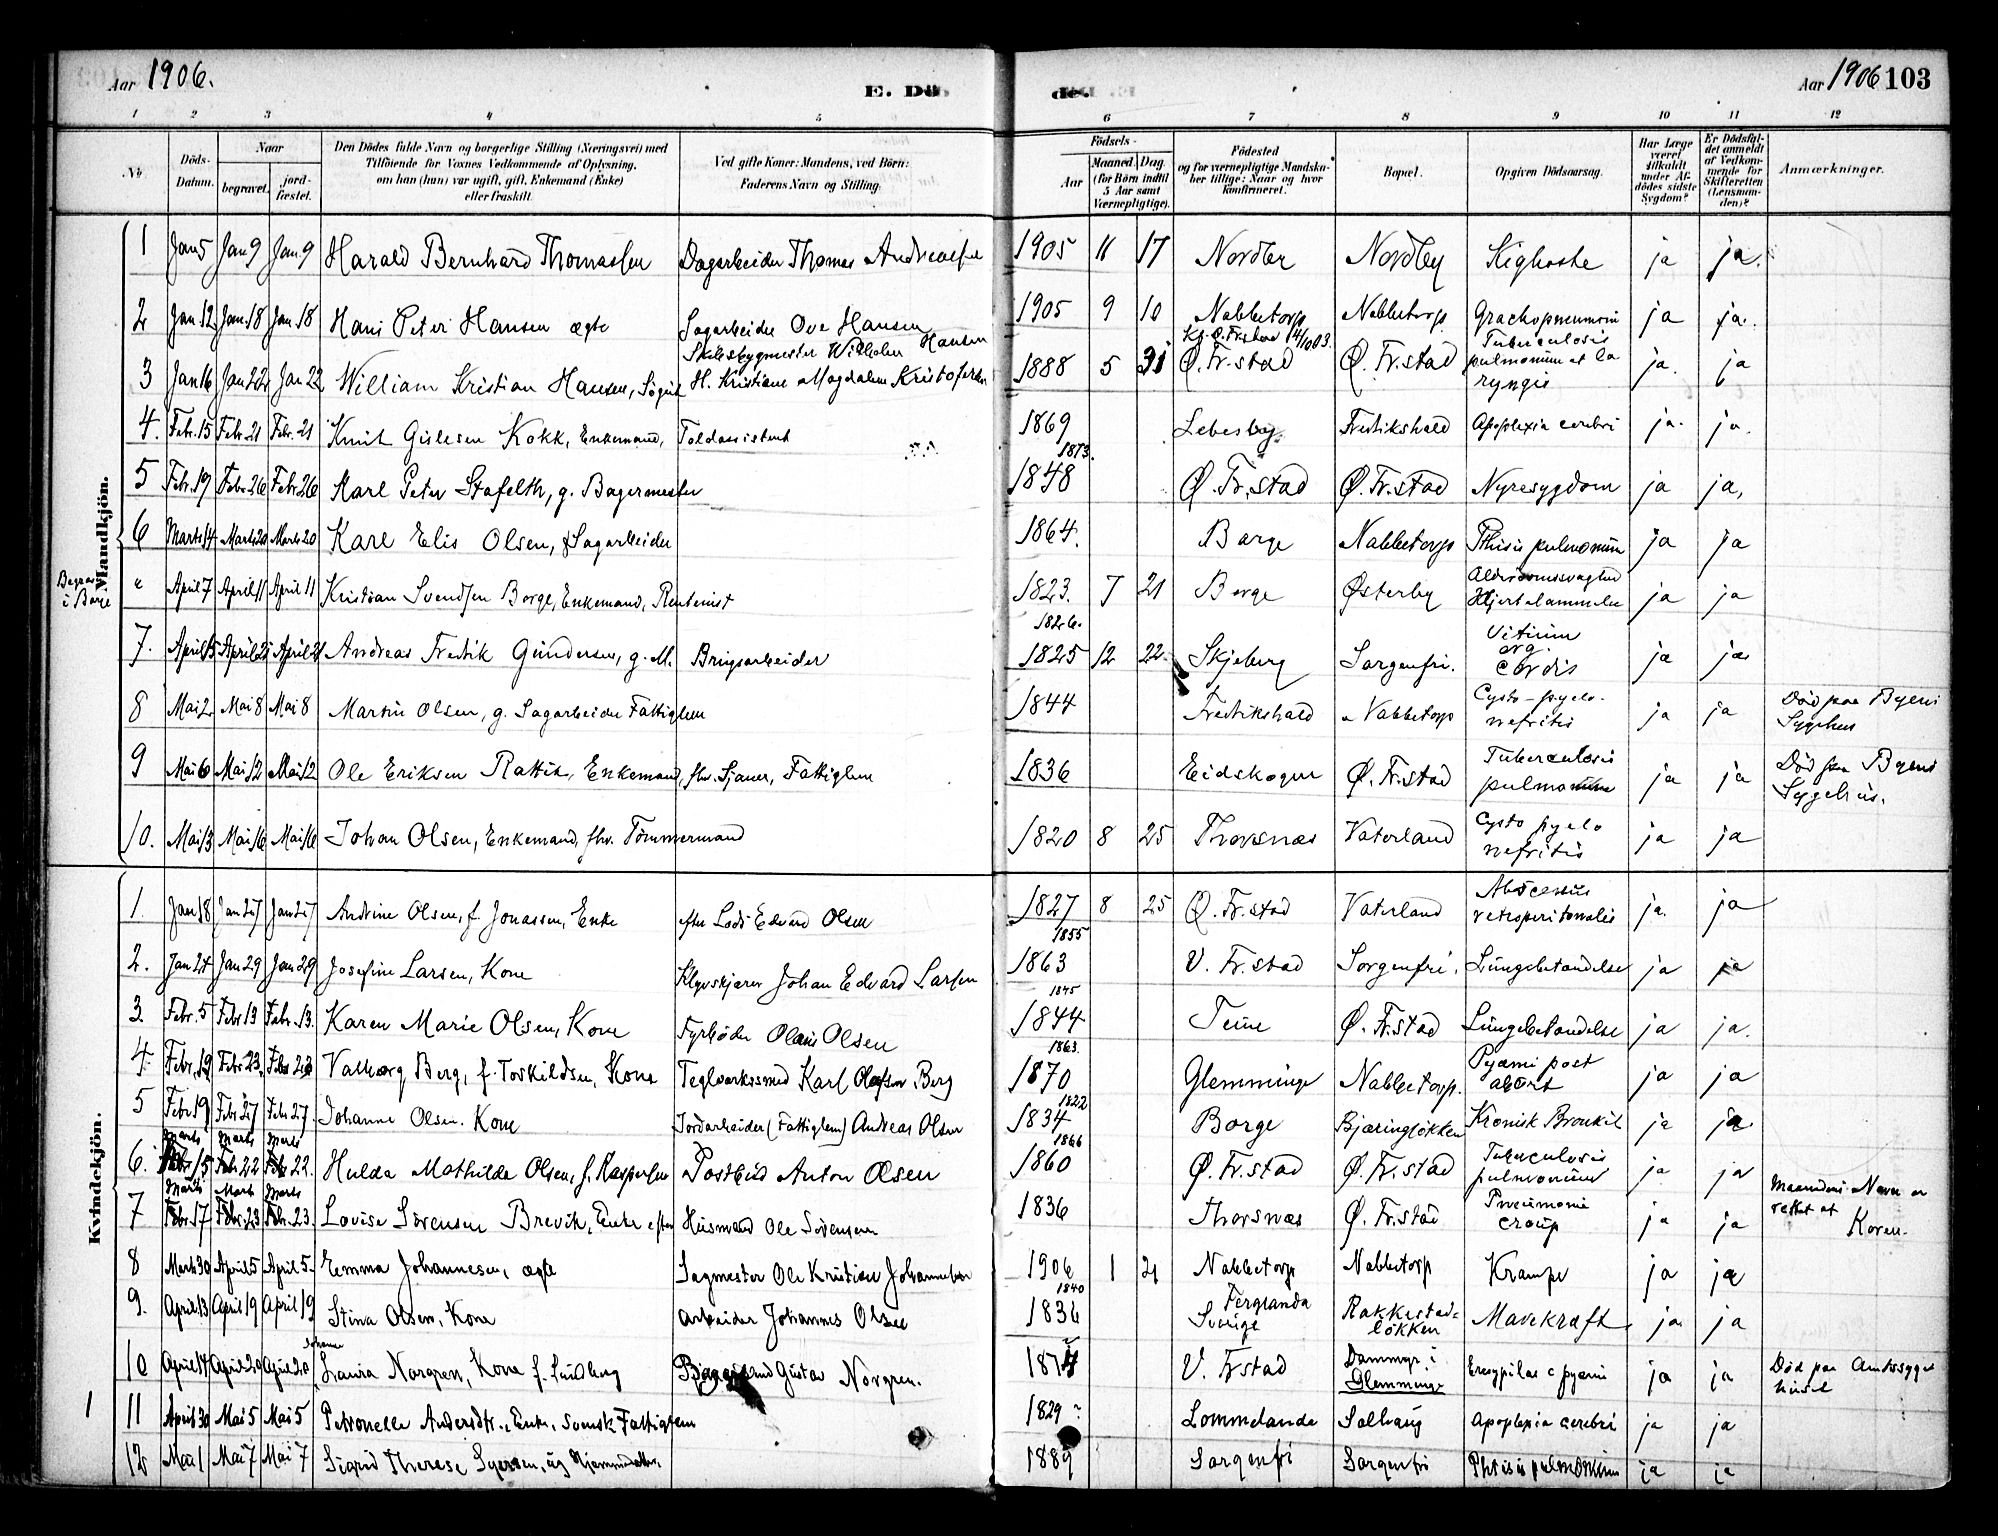 Aar 1906.
E. Dö
de.
Aar 1906 103
1 2 3 4 5 6 7 8 9 10 11 12
Nr.
Döds-Datum.
Naar
begravet.
jord-fæstet.
Den Dödes fulde Navn og borgerlige Stilling (Næringsvei) med
Tilföiende for Voxnes Vedkommende af Oplysning,
om han (hun) var ugift, gift, Enkemand (Enke)
eller fraskilt.
Ved gifte Koner: Mandens, ved Börn:
Faderens Navn og Stilling.
Födsels-
Aar
Maaned. Dag.
(for Börn indtil
5 Aar samt
Værnepligtige).
Födested
og for værnepligtige Mandska-
ber tillige: Naar og hvor
konfirmeret.
Bopæl.
Opgiven Dödsaarsag.
Har Læge
været
tilkaldt
under Af-
dödes sidste
Sygdom?
Er Dödsfal-
det anmeldt
af Vedkom-
mende for
Skifteretten
(Lensman-
den)?
Anmærkninger.
Mandkjön.
1 Jan 5 Jan 9 Jan 9 Harald Bernhard Thomassen Dagarbeider Thomas Andreassen 1905 11 17 Nordby Nordby Kighoste ja ja.
2 Jan 12 Jan 18 Jan 18 Hans Peter Hansen ægte Sagarbeider Ove Hansen 1905 9 10 Nabbetorp Nabbetorp ja ja.
3 Jan 16 Jan 22 Jan 22 William Kristian Hansen, Skibsbygmester Wilhelm Hansen H. Kristiane Magdalene Kristofersen 1888 5 31 Kf. Ø. Fr.stad 14/1003. Ø. Fr.stad Ø. Fr.stad Tuberculosis pulmonum et laryngis ja. ja
4. Febr. 15 Febr. 21 Febr. 21 Knut Gislesen Kokk, Enkemand, Toldassistent 1869 Lebesby Fredrikshald Apoplexia cerebri ja. ja.
5 Febr. 19 Febr. 26 Febr. 26 Karl Peter Stafelth, g. Bagermester 1873. 1848 Ø. Fr.stad Ø. Fr.stad Nyresygdom ja ja,
6 Marts 14 Marts 20 Marts 20 Karl Elis Olsen, Sagarbeider 1864. Borge Nabbetorp Pthisis pulmonum ja ja
Begrav. i Borge
" April 7 April 11 April 11 Kristian Svendsen Borge, Enkemand, Rentenist 1823. 7 21 Borge Østerby Alderdomssvaghed Hjertelammelse ja ja
7. April 15 April 21 April 21 Andreas Fredrik Gundersen, g. M. Brugsarbeider 1826. 1825 12 22. Skjeberg Sorgenfri. Vitium org. cordis ja ja
8 Mai 2 Mai 8 Mai 8 Martin Olsen, g. Sagarbeider Fattiglem 1844 Fredrikshald Nabbetorp Cysto-pyelo-nefritis ja ja Död paa Byens Sygehus
9 Mai 6 Mai 12 Mai 12 Ole Eriksen Rattik, Enkemand, fhv. Sjauer, Fattiglem 1836 Eidskogen Ø. Fr.stad Tuberculosis pulmonum ja ja Död paa Byens Sygehus.
10. Mai 13 Mai 16 Mai 16 Johan Olsen, Enkemand, fhv. Tömmermand 1820 8 25 Thorsnæs Vaterland Cysto pyelo nefritis ja ja
Kvindekjön.
1. Jan 18 Jan 27 Jan 27 Andrine Olsen, f. Jonassen, Enke efter Lods Edvard Olsen 1827 8 25 Ø. Fr.stad Vaterland Abscessus retroperitonalis ja. ja
2. Jan 24 Jan 29 Jan 29 Josefine Larsen, Kone Johan Edvard Larsen 1855 1863 V. Fr.stad Sorgenfri. Lungebetændelse ja ja
3. Febr. 5 Febr. 13 Febr. 13. Karen Marie Olsen, Kone Fyrböder Olaus Olsen 1845 1844 Tune Ø. Fr.stad Lungebetændelse ja ja.
4. Febr. 19 Febr. 23. Febr. 23 Valborg Berg, f. Torkildsen, Kone Teglverkssmed Karl Olafsen Berg 1863. 1870 Glemminge Nabbetorp. Pyæmi post abort ja ja
5 Febr. 19 Febr. 27 Febr. 27 Johanne Olsen. Kone Jordarbeider (Fattiglem) Andreas Olsen 1822 1834 Borge Bjæringlökken Kronisk Bronkit ja ja
6. Marts 15 Marts 22 Marts 22. Hulda Mathilde Olsen, f. Kaspersen Postbud Anton Olsen 1866 1860 Ø. Fr.stad Ø. Fr.stad Tuberculosis pulmonum ja ja
7 Marts Febr. 17 Marts Febr. 23 Marts Febr. 23. Lovise Sörensen Brevik, Enke efter Husmand Ole Sörensen 1836 Thorsnæs Ø. Fr.stad Pneumonia croup ja ja Maanedens Navn er rettet af Koren.
8 Marts 30 April 5 April 5. Emma Johannesen, ægte Sagmester Ole Kristian Johannesen 1906 1 21 Nabbetorp Nabbetorp Krampe ja ja
9. April 13 April 19 April 19 Stina Olsen, Kone Arbeider Johannes Olsen 1840 1836 Ferglanda Sverige Rakkestad-lökken Mavekræft ja ja
10 April 14 April 20 April 20 Johanne Laura Norgren, Kone f. Lundberg Gustav Norgren. 1874 V. Frstad Dammyr i Glemminge Erysipelas c pyæmi ja ja Död paa Amtssygehuset
1
11 April 30 Mai 5 Mai 5 Petronelle Andersdtr., Enke, svensk Fattiglem 1829 ? Lommelanda Solhaug Apoplexia cerebri ja ja
12 Mai 1 Mai 7 Mai 7 Sigrid Therese Syversen, ug Hjemmedatter. 1889 Sorgenfri Sorgenfri Phtisis pulmonum ja ja